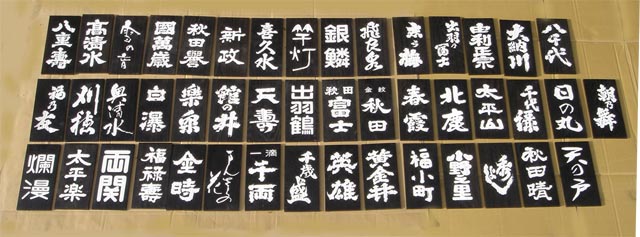 八重壽
高清水
國萬歳
秋田譽
新政
喜久水
竿灯
銀鱗
飛良泉
出羽の冨士
由利正宗
大納川
八千代
福乃友
刈穂
奥清水
白瀑
樂泉
天壽
出羽鶴
秋田富士
金紋秋田
春霞
北鹿
太平山
千代緑
日の丸
朝乃舞
爛漫
太平楽
両関
福禄壽
金時
まんさくの花
一滴千両
千歳盛
英雄
黄金井
福小町
小野之里
秀よし
秋田晴
天の戸